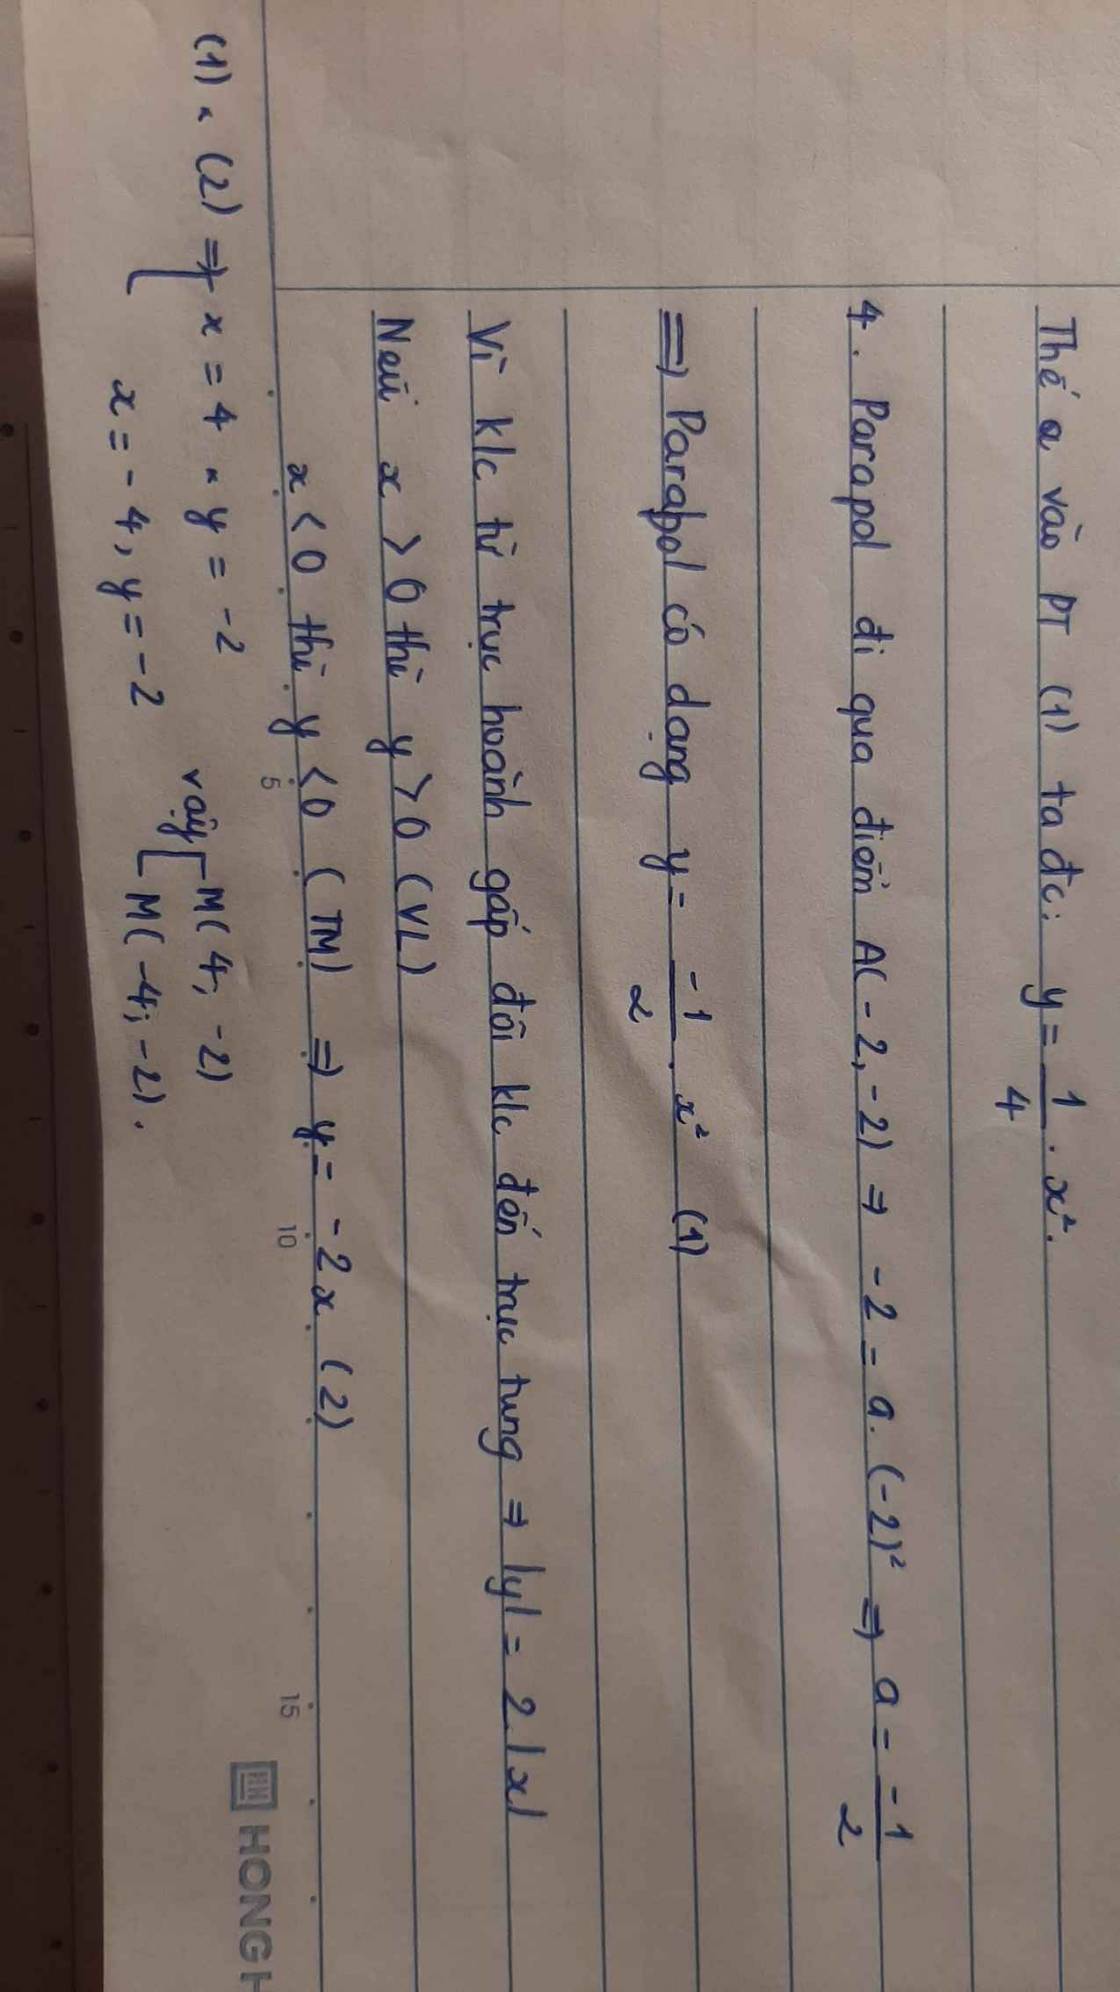 Thế a vào PT (1) ta đc: y = 1/4 . x².
4. Parapol đi qua điểm A(-2,-2) ⇒ -2 = a.(-2)² ⇒ a = -1/2
⇒ Parapol có dạng y = -1/2 . x² (1)
Vì k/c từ trục hoành gấp đôi k/c đến trục tung ⇒ |y| = 2.|x|
Nếu x > 0 thì y > 0 (VL)
x < 0 thì y < 0 (TM) ⇒ y = -2x (2)
(1), (2) ⇒ [ x = 4, y = -2
x = -4, y = -2
Vậy [ M(4; -2)
M(-4; -2).
5 10 15
HONG H